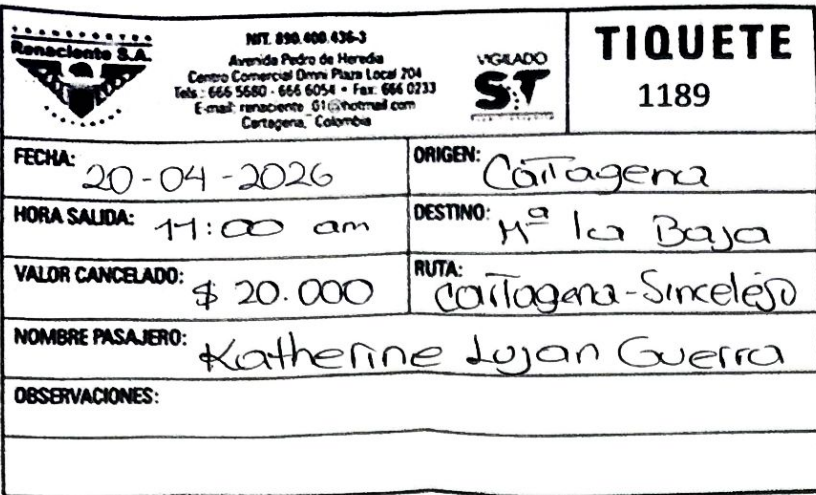 Renaciente S.A.
NIT. 890.400.436-3
Avenida Pedro de Heredia
Centro Comercial Omni Plaza Local 204
Tels.: 666 5680 - 666 6054 • Fax: 666 0233
E-mail: renaciente_01@hotmail.com
Cartagena, Colombia
VIGILADO
ST
TIQUETE
1189
FECHA: 20-04-2026
ORIGEN: Cartagena
HORA SALIDA: 11:00 am
DESTINO: Mª la Baja
VALOR CANCELADO: $ 20.000
RUTA: Cartagena-Sincelejo
NOMBRE PASAJERO: Katherine Lujan Guerra
OBSERVACIONES: